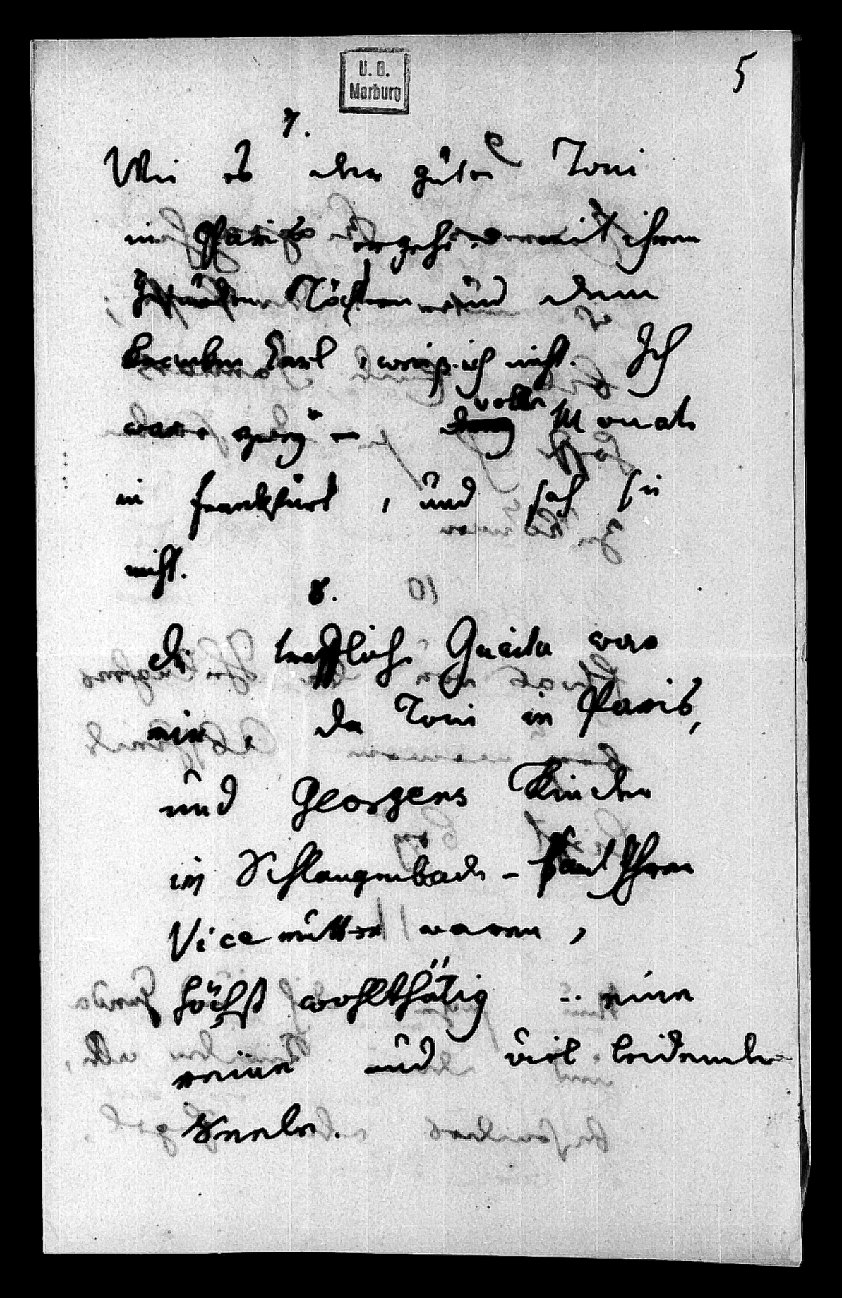 5
U. B.
Marburg
7.
Wie es der guten Toni
in Paris ergehe mit ihren
Töchtern und dem
Karl, weiß ich nicht. Ich
war zwey – volle Monate
in Frankfurt, und sah sie
nicht.
8.
die treffliche Guaita war
mir, da Toni in Paris,
und Georgens Kinder
in Schlangenbad – Ihren
Vicemutter waren,
höchst wohlthätig .. eine
reine und viel leidende
Seele.